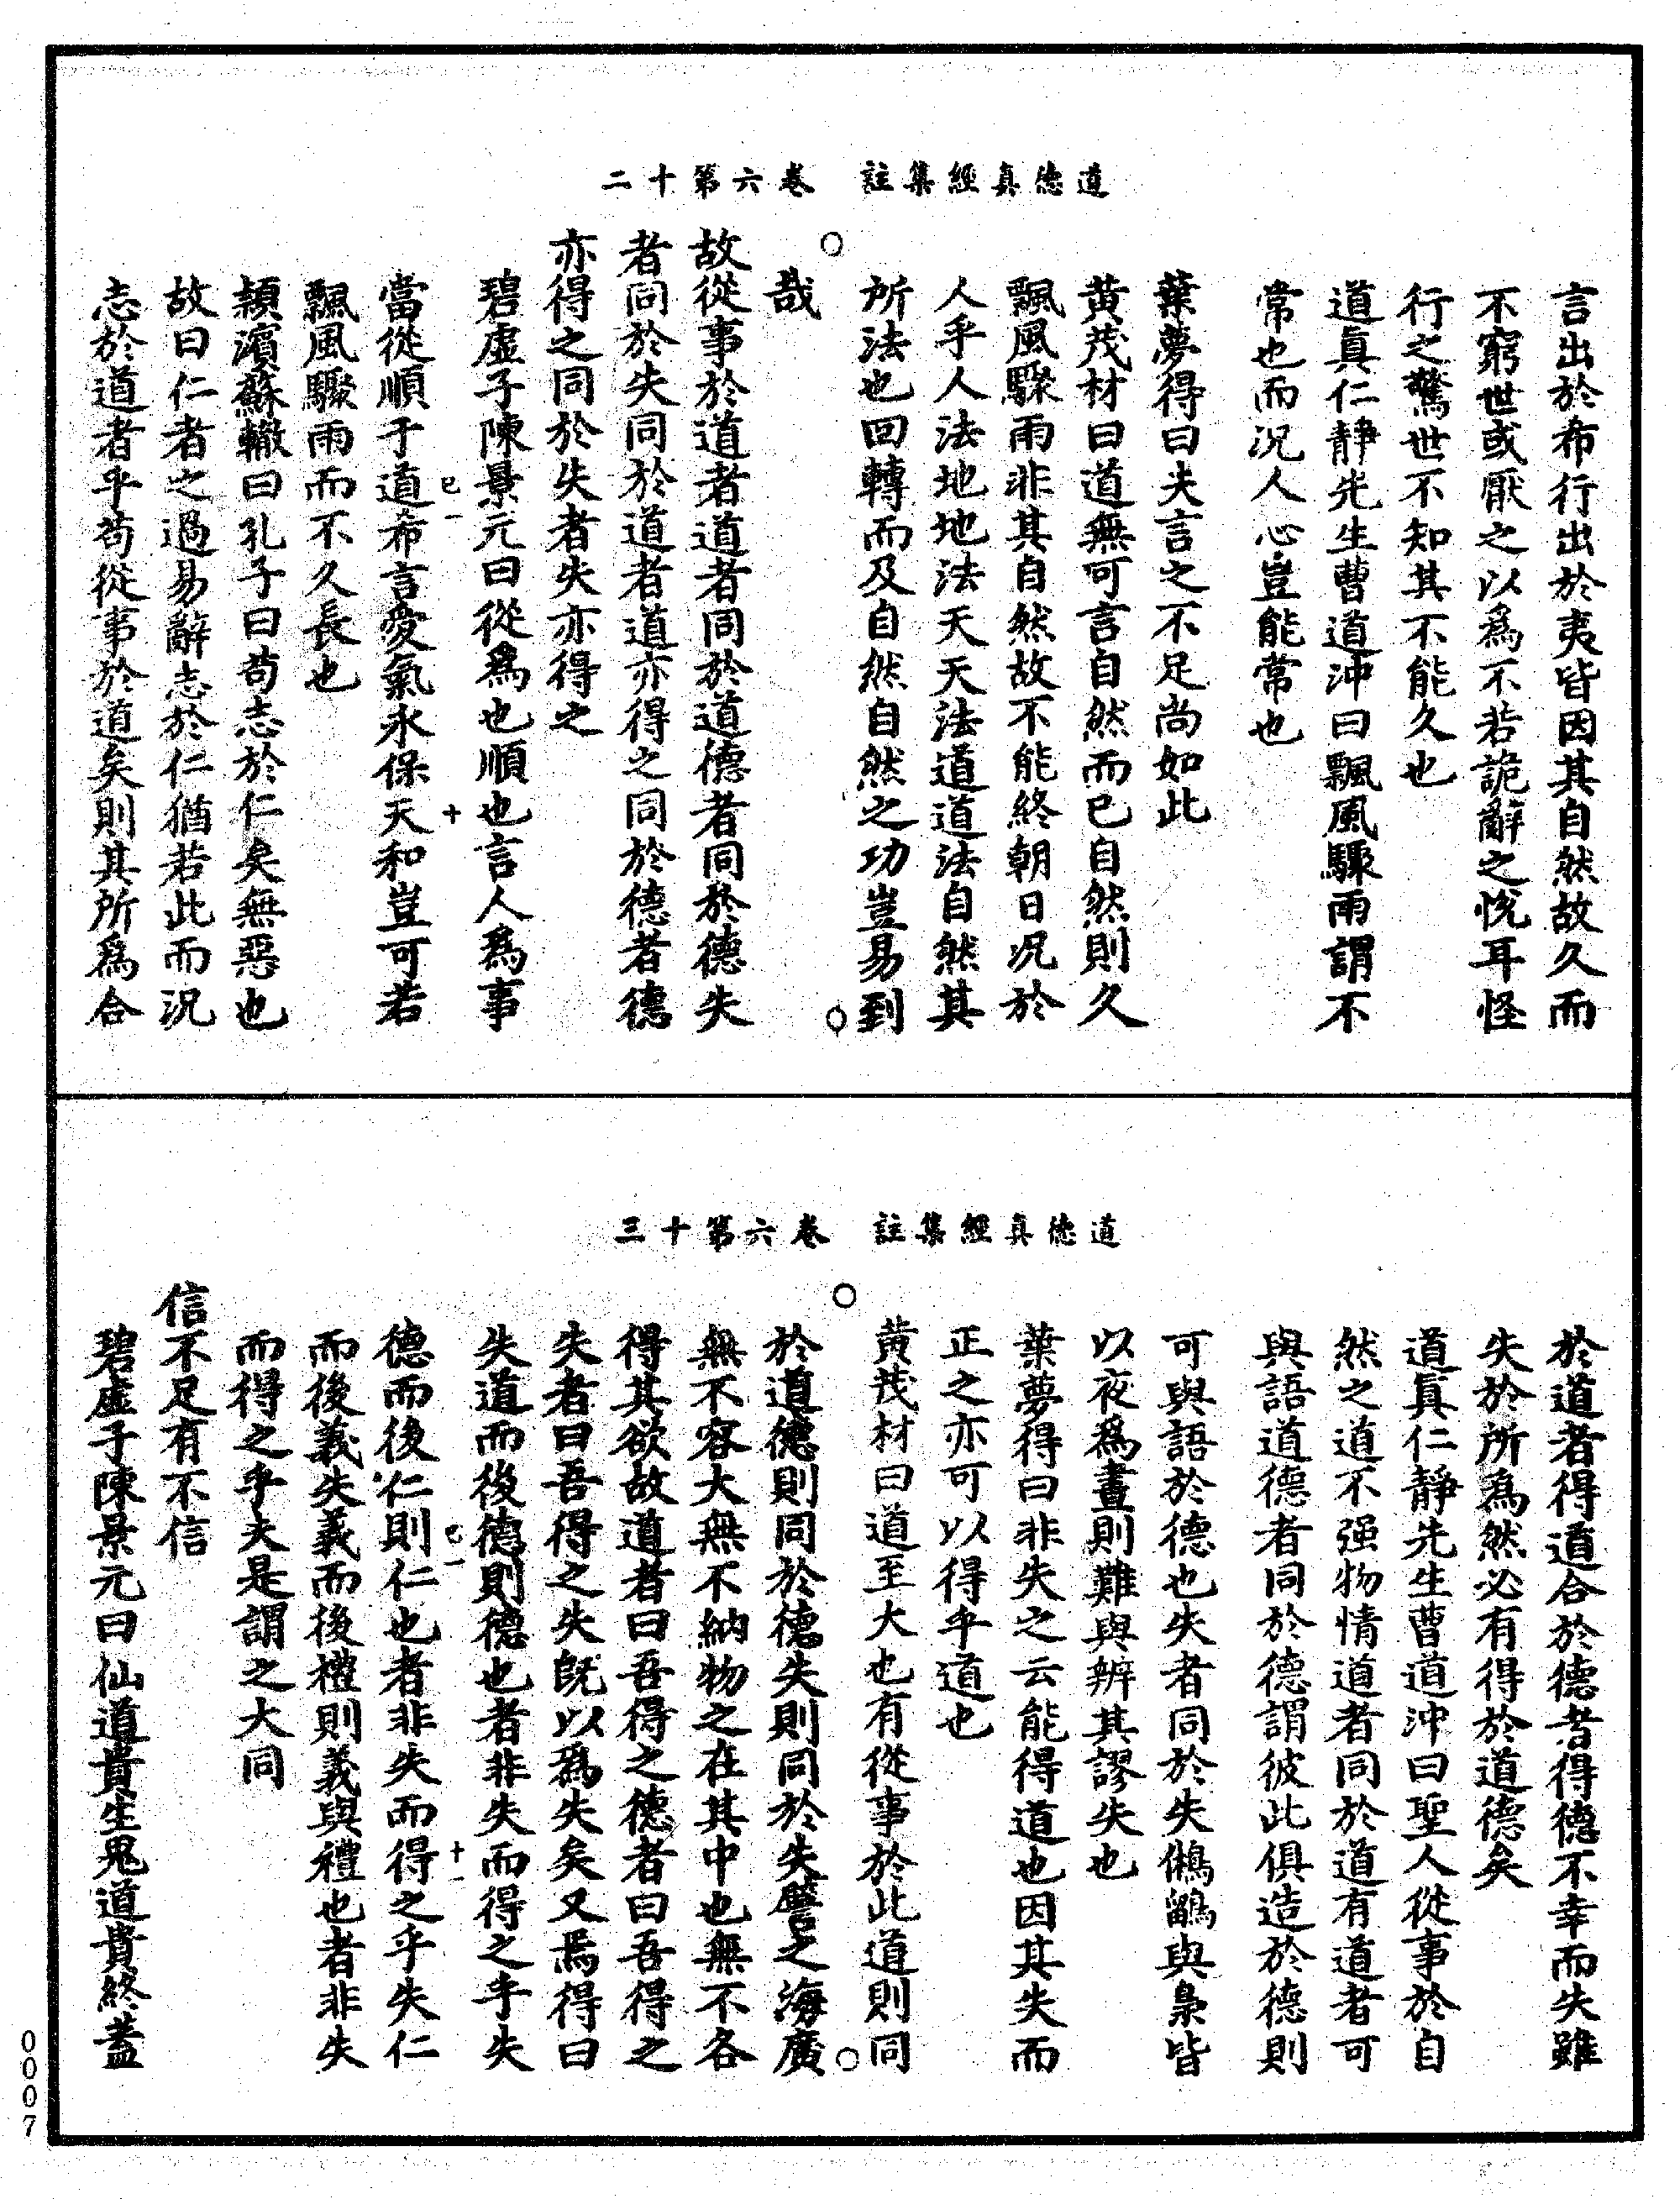 道德真經集註　卷六第十二
言出於布行出於夷皆因其自然故久而
不窮世或厭之以爲不若詭辭之悅耳怪
行之驚世不知其不能久也
道眞仁靜先生曹道沖曰飄風驟雨謂不
常也而況人心豈能常也
葉夢得曰夫言之不足尚如此
黃茂材曰道無可言自然而已自然則久
飄風驟雨非其自然故不能終朝日況於
人乎人法地地法天天法道道法自然其
所法也回轉而及自然自然之功豈易到
哉
故從事於道者道者同於道德者同於德失
者同於失同於道者道亦得之同於德者德
亦得之同於失者失亦得之
碧虛子陳景元曰從爲也順也言人爲事
巳一
十
當從順于道布言愛氣永保天和豈可若
飄風驟雨而不久長也
穎濱蘇轍曰孔子曰苟志於仁矣無惡也
故曰仁者之過易辭志於仁猶若此而況
志於道者乎苟從事於道矣則其所爲合
道德真經集註　卷六第十三
於道者得道合於德者得德不幸而失雖
失於所爲然必有得於道德矣
道眞仁靜先生曹道沖曰聖人從事於自
然之道不强物情道者同於道有道者可
與語道德者同於德謂彼此俱造於德則
可與語於德也失者同於失鵂鶹與梟皆
以夜爲晝則難與辨其謬失也
葉夢得曰非失之云能得道也因其失而
正之亦可以得乎道也
黃茂材曰道至大也有從事於此道則同
於道德則同於德失則同於失譬之海廣
無不容大無不納物之在其中也無不各
得其欲故道者曰吾得之德者曰吾得之
失者曰吾得之失旣以爲失矣又焉得曰
失道而後德則德也者非失而得之乎失
巳一
十一
德而後仁則仁也者非失而得之乎失仁
而後義失義而後禮則義與禮也者非失
而得之乎夫是謂之大同
信不足有不信
碧虛子陳景元曰仙道貴生鬼道貴終蓋
0007